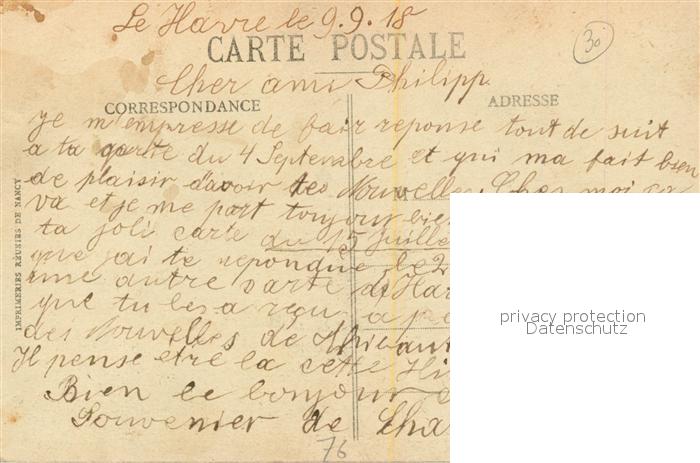 Le Havre le 9.9.18
30
CARTE POSTALE
Cher ami Philipp
CORRESPONDANCE
ADRESSE
Je m'empresse de fair reponse tout de suit
a ta carte du 4 Septembre et qui ma fait bien
de plaisir d'avoir tes Nouvelles Cher moi ça
va et je me port toujour bien
ta joli carte du 15 Juille
que j'ai te repondue le 2
une autre carte du Har
que tu les a reçu a
des Nouvelles de
Il pense etre la cette
Bien le bonjour
Souvenier de Cha
76
IMPRIMERIES RÉUNIES DE NANCY
privacy protection
Datenschutz